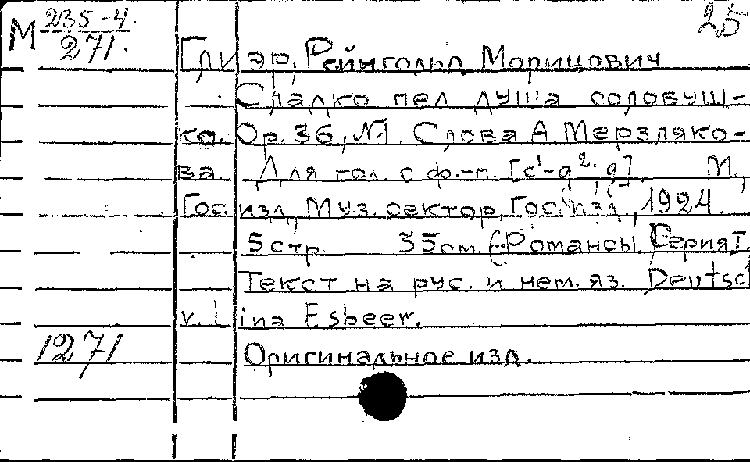 М 235-4. 25
271.
Глиэр, Рейнгольд Морицович
Сладко пел душа соловуш-
ко. Op. 36, №1. Слова А. Мерзляко-
ва. Для гол. с ф.-п. [c¹-g², g]. М.,
Гос. изд., Муз. сектор, Гос. изд., 1924.
5 стр. 35 см. (Романсы. Серия I
Текст на рус. и нем. яз. Deutsc
v. Lina Esbeer.
1271 Оригинальное изд.